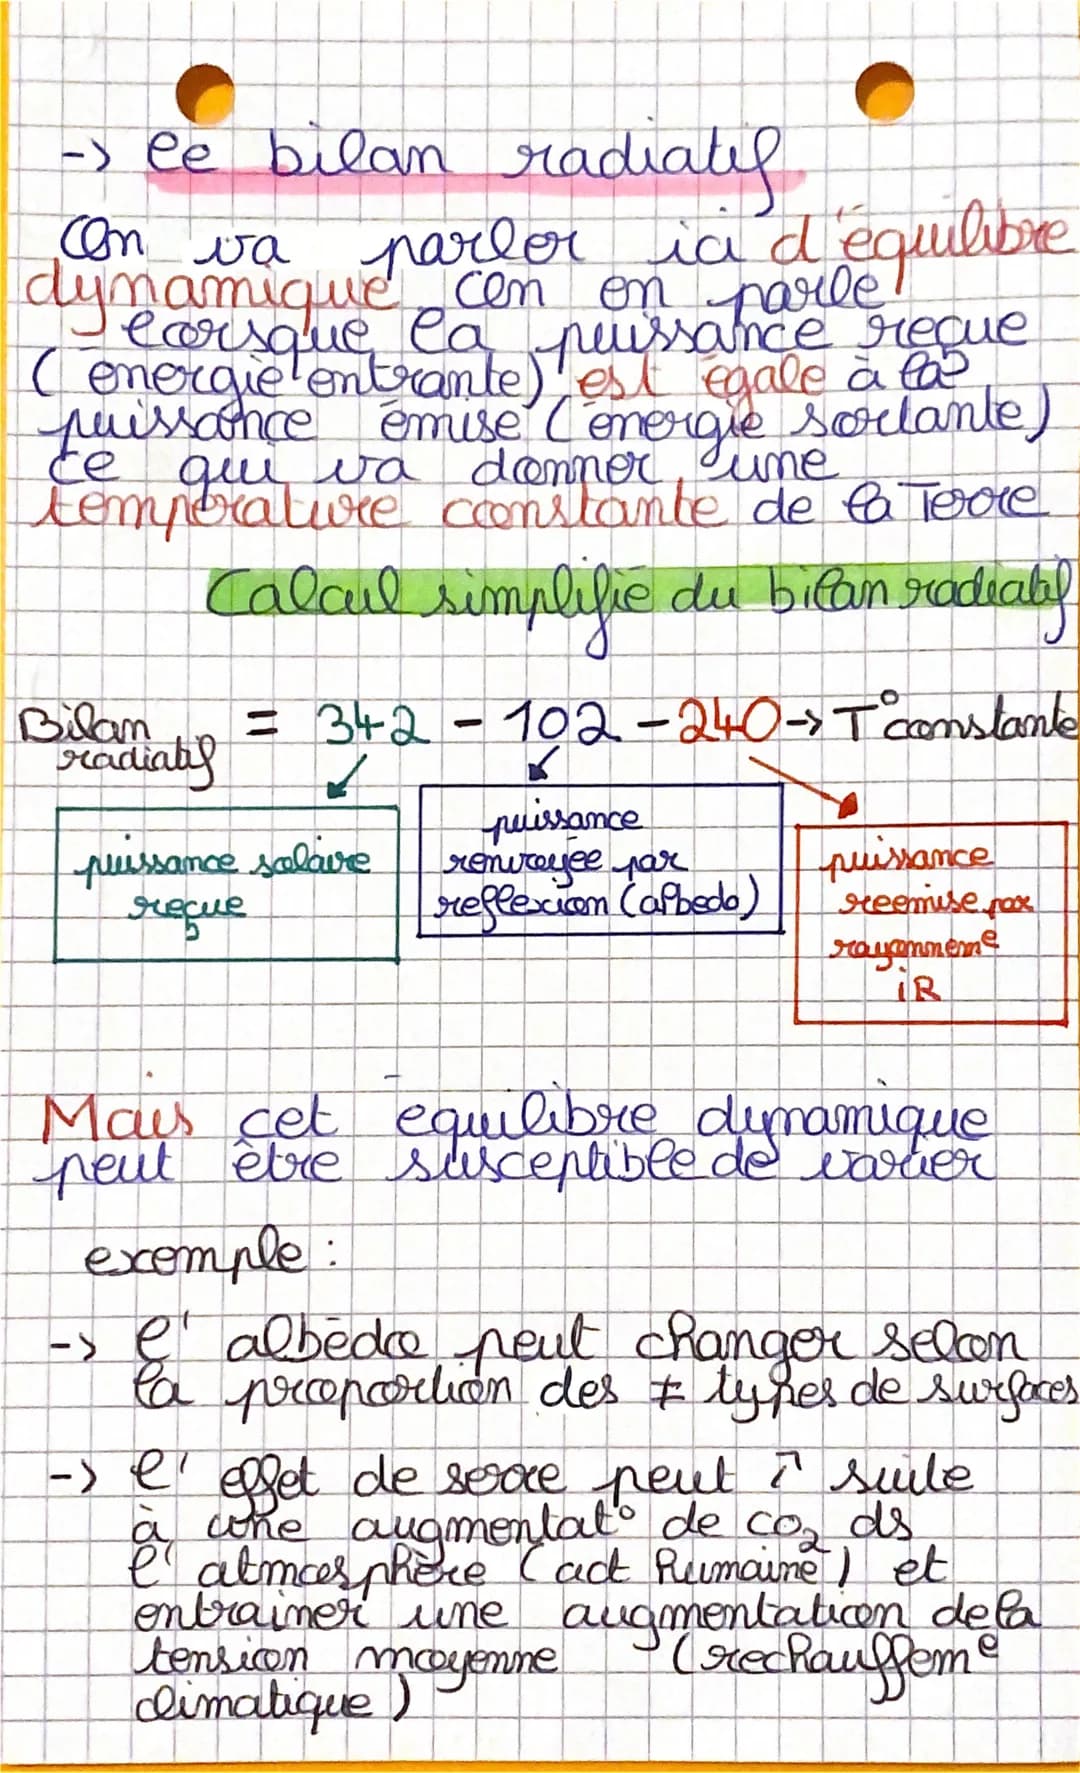 -> le bilan radiatif
On va parler ici d'équilibre
dynamique. On en parle
lorsque la puissance reçue
(énergie entrante) est égale à la
puissance émise (énergie sortante)
ce qui va donner une
température constante de la Terre
Calcul simplifié du bilan radiatif
Bilan radiatif = 342 - 102 - 240 -> T° constante
puissance solaire
reçue
puissance
renvoyée par
reflexion (albedo)
puissance
reemise par
rayonnemᵉ
iR
Mais cet équilibre dynamique
peut être susceptible de varier
exemple :
-> l' albédo peut changer selon
la proportion des ≠ types de surfaces
-> l' effet de serre peut ↗ suite
à une augmentat° de CO₂ ds
l' atmosphère (act humaine) et
entrainer une augmentation de la
tension moyenne (rechauffemᵉ
climatique)